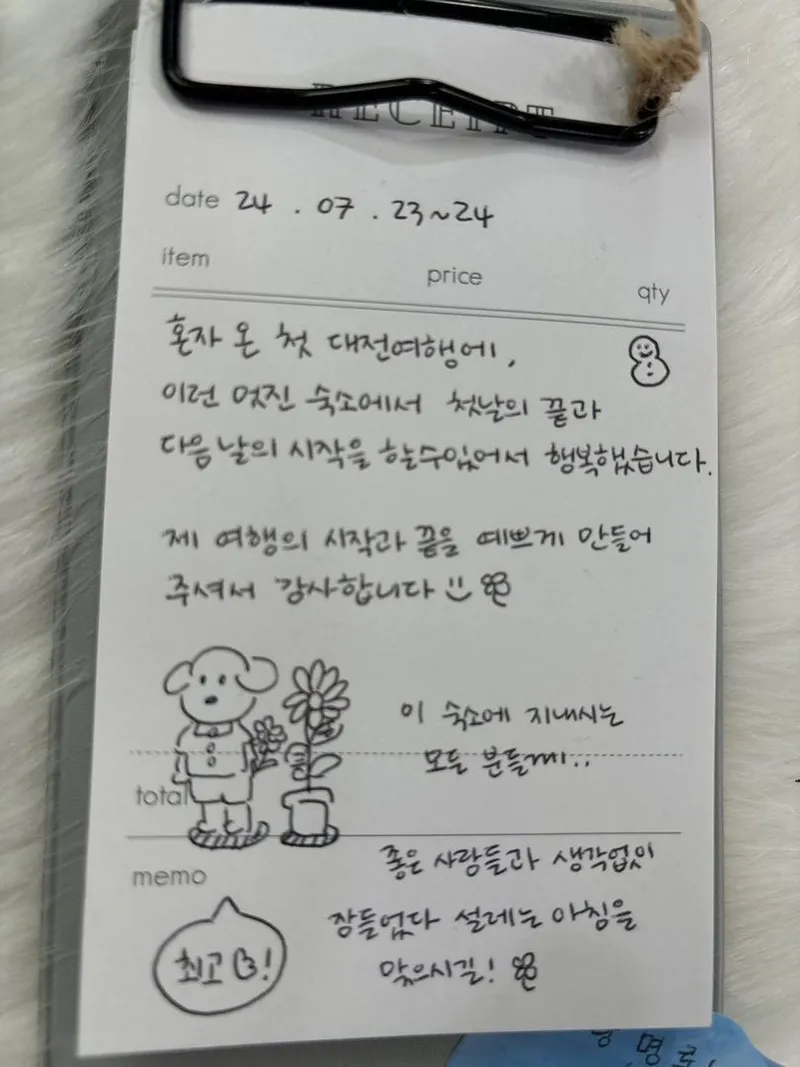 RECEIPT
date 24 . 07 . 23~24
item price qty
혼자 온 첫 대전여행에,
이런 멋진 숙소에서 첫날의 끝과
다음날의 시작을 할수있어서 행복했습니다.
제 여행의 시작과 끝을 예쁘게 만들어
주셔서 감사합니다
이 숙소에 지내시는
모든 분들께..
total
좋은 사람들과 생각없이
memo
잠들었다 설레는 아침을
최고!
맞으시길!